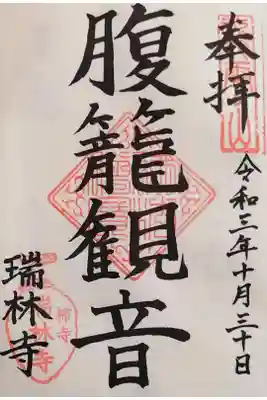 奉拝
令和三年十月三十日
腹籠観音
瑞林寺